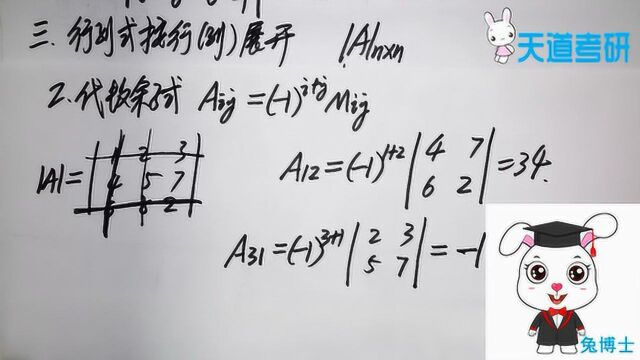 三.行列式按行(列)展开 |A|nxn
天道考研
2.代数余子式 Aij=(-1)^{i+j} Mij
|A|= | 1 2 3 |
| 4 5 7 |
| 6 2 |
A12=(-1)^{1+2} | 4 7 |
| 6 2 | =34.
A31=(-1)^{3+1} | 2 3 |
| 5 7 | =-1
兔博士